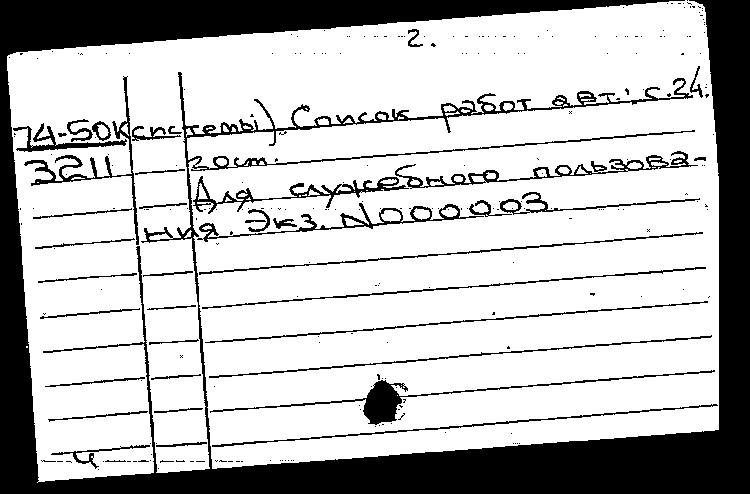 2.
74-50К системы). Список работ авт.: с.24.
3211 20 см.
Для служебного пользова-
ния. Экз. N000003.
ч